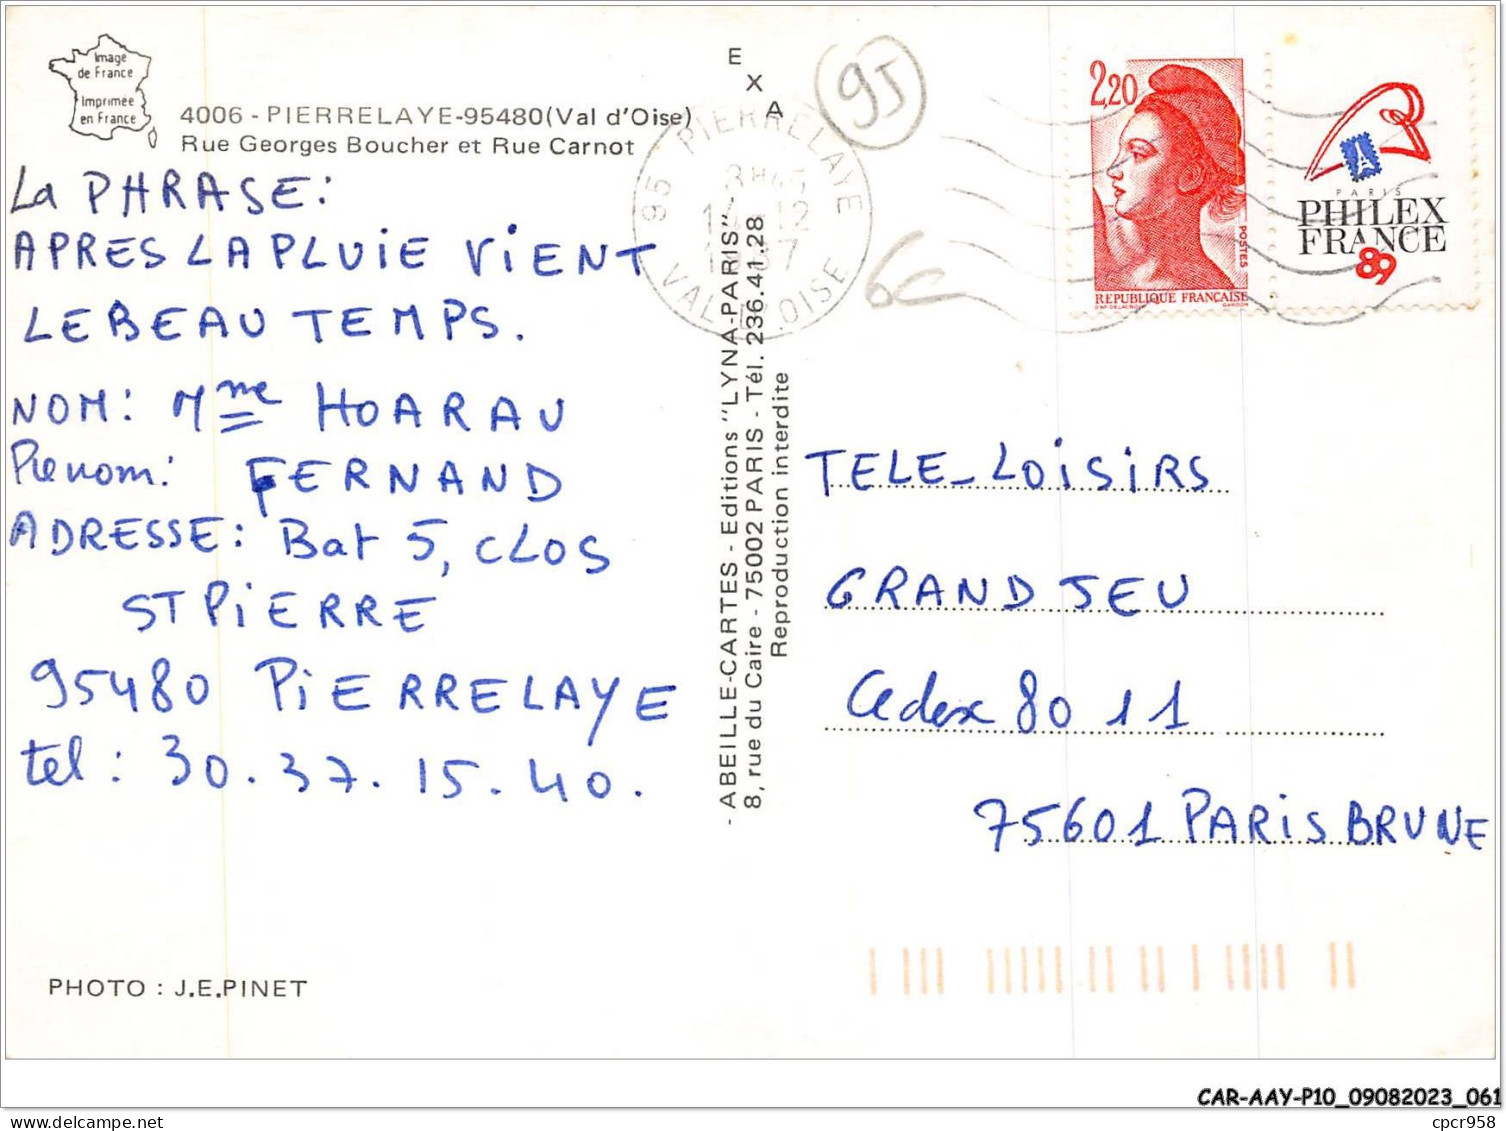 Image
de France
Imprimée
en France
4006 - PIERRELAYE-95480(Val d'Oise)
Rue Georges Boucher et Rue Carnot
La PHRASE:
APRES LA PLUIE VIENT
LE BEAU TEMPS.
NOM: Mme HOARAU
Prenom: FERNAND
ADRESSE: Bat 5, CLOS
ST PIERRE
95480 PIERRELAYE
tel: 30.37.15.40.
PHOTO : J.E.PINET
EXA
- ABEILLE-CARTES - Editions "LYNA-PARIS" -
8, rue du Caire - 75002 PARIS - Tél. 236.41.28
Reproduction interdite
95
PIERRELAYE
95
14-12
VAL D'OISE
6€
2,20
POSTES
REPUBLIQUE FRANÇAISE
D'AP. DELACROIX GANDON
PARIS
PHILEX
FRANCE
89
TELE-LOISIRS
GRAND JEU
Cedex 80 11
75601 PARIS BRUNE
CAR-AAY-P10_09082023_061
cpcr958